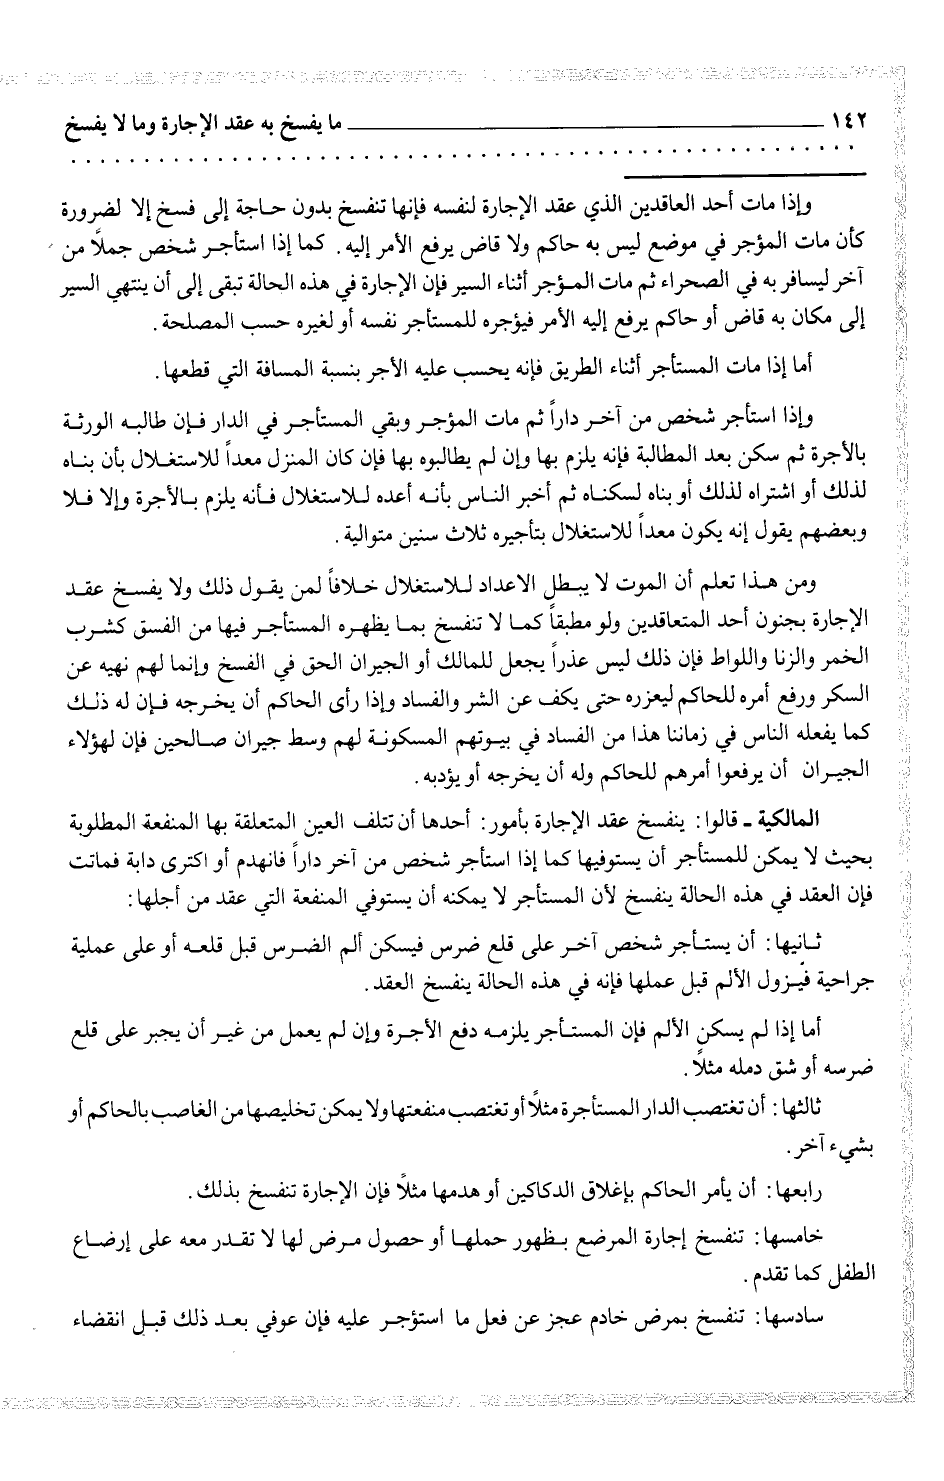 ١٤٢ ـــــــــ ما يفسخ به عقد الإجارة وما لا يفسخ
وإذا مات أحد العاقدين الذي عقد الإجارة لنفسه فإنها تنفسخ بدون حاجة إلى فسخ إلا لضرورة
كأن مات المؤجر في موضع ليس به حاكم ولا قاض يرفع الأمر إليه. كما إذا استأجر شخص جملاً من
آخر ليسافر به في الصحراء ثم مات المؤجر أثناء السير فإن الإجارة في هذه الحالة تبقى إلى أن ينتهي السير
إلى مكان به قاض أو حاكم يرفع إليه الأمر فيؤجره للمستأجر نفسه أو لغيره حسب المصلحة.
أما إذا مات المستأجر أثناء الطريق فإنه يحسب عليه الأجر بنسبة المسافة التي قطعها.
وإذا استأجر شخص من آخر داراً ثم مات المؤجر وبقي المستأجر في الدار فإن طالبه الورثة
بالأجرة ثم سكن بعد المطالبة فإنه يلزم بها وإن لم يطالبوه بها فإن كان المنزل معداً للاستغلال بأن بناه
لذلك أو اشتراه لذلك أو بناه لسكناه ثم أخبر الناس بأنه أعده للاستغلال فأنه يلزم بالأجرة وإلا فلا
وبعضهم يقول إنه يكون معداً للاستغلال بتأجيره ثلاث سنين متوالية.
ومن هذا تعلم أن الموت لا يبطل الاعداد للاستغلال خلافاً لمن يقول ذلك ولا يفسخ عقد
الإجارة بجنون أحد المتعاقدين ولو مطبقاً كما لا تنفسخ بما يظهره المستأجر فيها من الفسق كشرب
الخمر والزنا واللواط فإن ذلك ليس عذراً يجعل للمالك أو الجيران الحق في الفسخ وإنما لهم نهيه عن
السكر ورفع أمره للحاكم ليعزره حتى يكف عن الشر والفساد وإذا رأى الحاكم أن يخرجه فإن له ذلك
كما يفعله الناس في زماننا هذا من الفساد في بيوتهم المسكونة لهم وسط جيران صالحين فإن لهؤلاء
الجيران أن يرفعوا أمرهم للحاكم وله أن يخرجه أو يؤدبه.
المالكية ـ قالوا: ينفسخ عقد الإجارة بأمور: أحدها أن تتلف العين المتعلقة بها المنفعة المطلوبة
بحيث لا يمكن للمستأجر أن يستوفيها كما إذا استأجر شخص من آخر داراً فانهدم أو اكترى دابة فماتت
فإن العقد في هذه الحالة ينفسخ لأن المستأجر لا يمكنه أن يستوفي المنفعة التي عقد من أجلها:
ثانيها: أن يستأجر شخص آخر على قلع ضرس فيسكن ألم الضرس قبل قلعه أو على عملية
جراحية فيزول الألم قبل عملها فإنه في هذه الحالة ينفسخ العقد.
أما إذا لم يسكن الألم فإن المستأجر يلزمه دفع الأجرة وإن لم يعمل من غير أن يجبر على قلع
ضرسه أو شق دمله مثلاً.
ثالثها: أن تغتصب الدار المستأجرة مثلاً أو تغتصب منفعتها ولا يمكن تخليصها من الغاصب بالحاكم أو
بشيء آخر.
رابعها: أن يأمر الحاكم بإغلاق الدكاكين أو هدمها مثلاً فإن الإجارة تنفسخ بذلك.
خامسها: تنفسخ إجارة المرضع بظهور حملها أو حصول مرض لها لا تقدر معه على إرضاع
الطفل كما تقدم.
سادسها: تنفسخ بمرض خادم عجز عن فعل ما استؤجر عليه فإن عوفي بعد ذلك قبل انقضاء